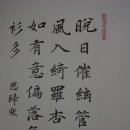 晚日催絃管
風入綺羅杏
如有意偏落
衫多
思歸樂